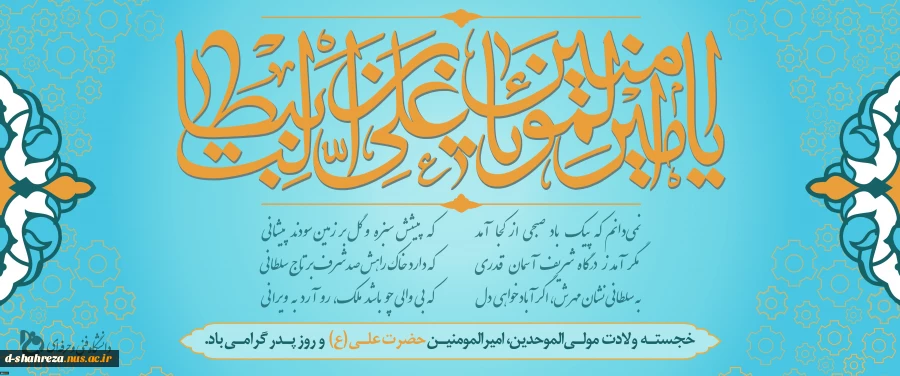 یا امیرالمومنین یا علی بن ابیطالب
نمی‌دانم که پیک باد صبحی از کجا آمد
که پیشش سبزه و گل بر زمین سودند پیشانی
مگر آمد ز درگاه شریف آسمان قدری
که دارد خاک راهش صد شرف بر تاج سلطانی
به سلطانی نشان مهرش، اگر آباد خواهی دل
که بی والی چو باشد ملک، رو آرد به ویرانی
خجسته ولادت مولی‌الموحدین، امیرالمومنین حضرت علی (ع) و روز پدر گرامی‌باد.
دانشگاه فنی و حرفه‌ای
d-shahreza.nus.ac.ir